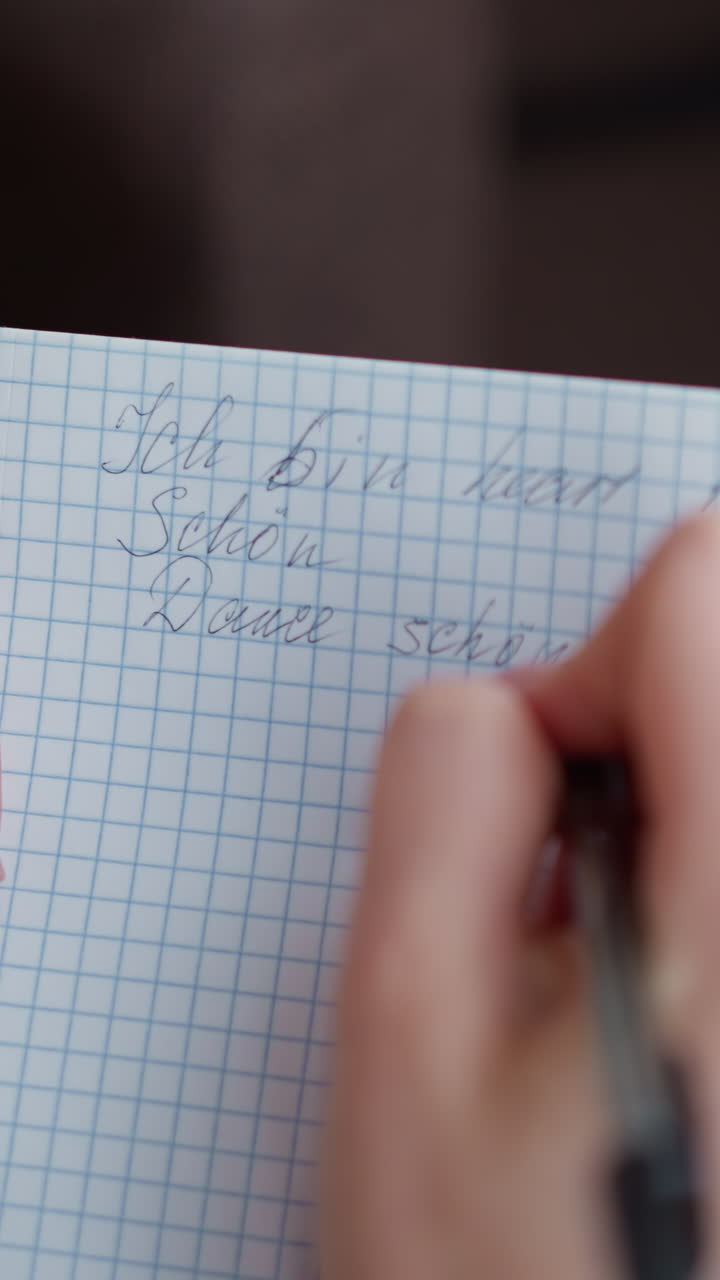 Ich bin heart
Schön
Dance schön